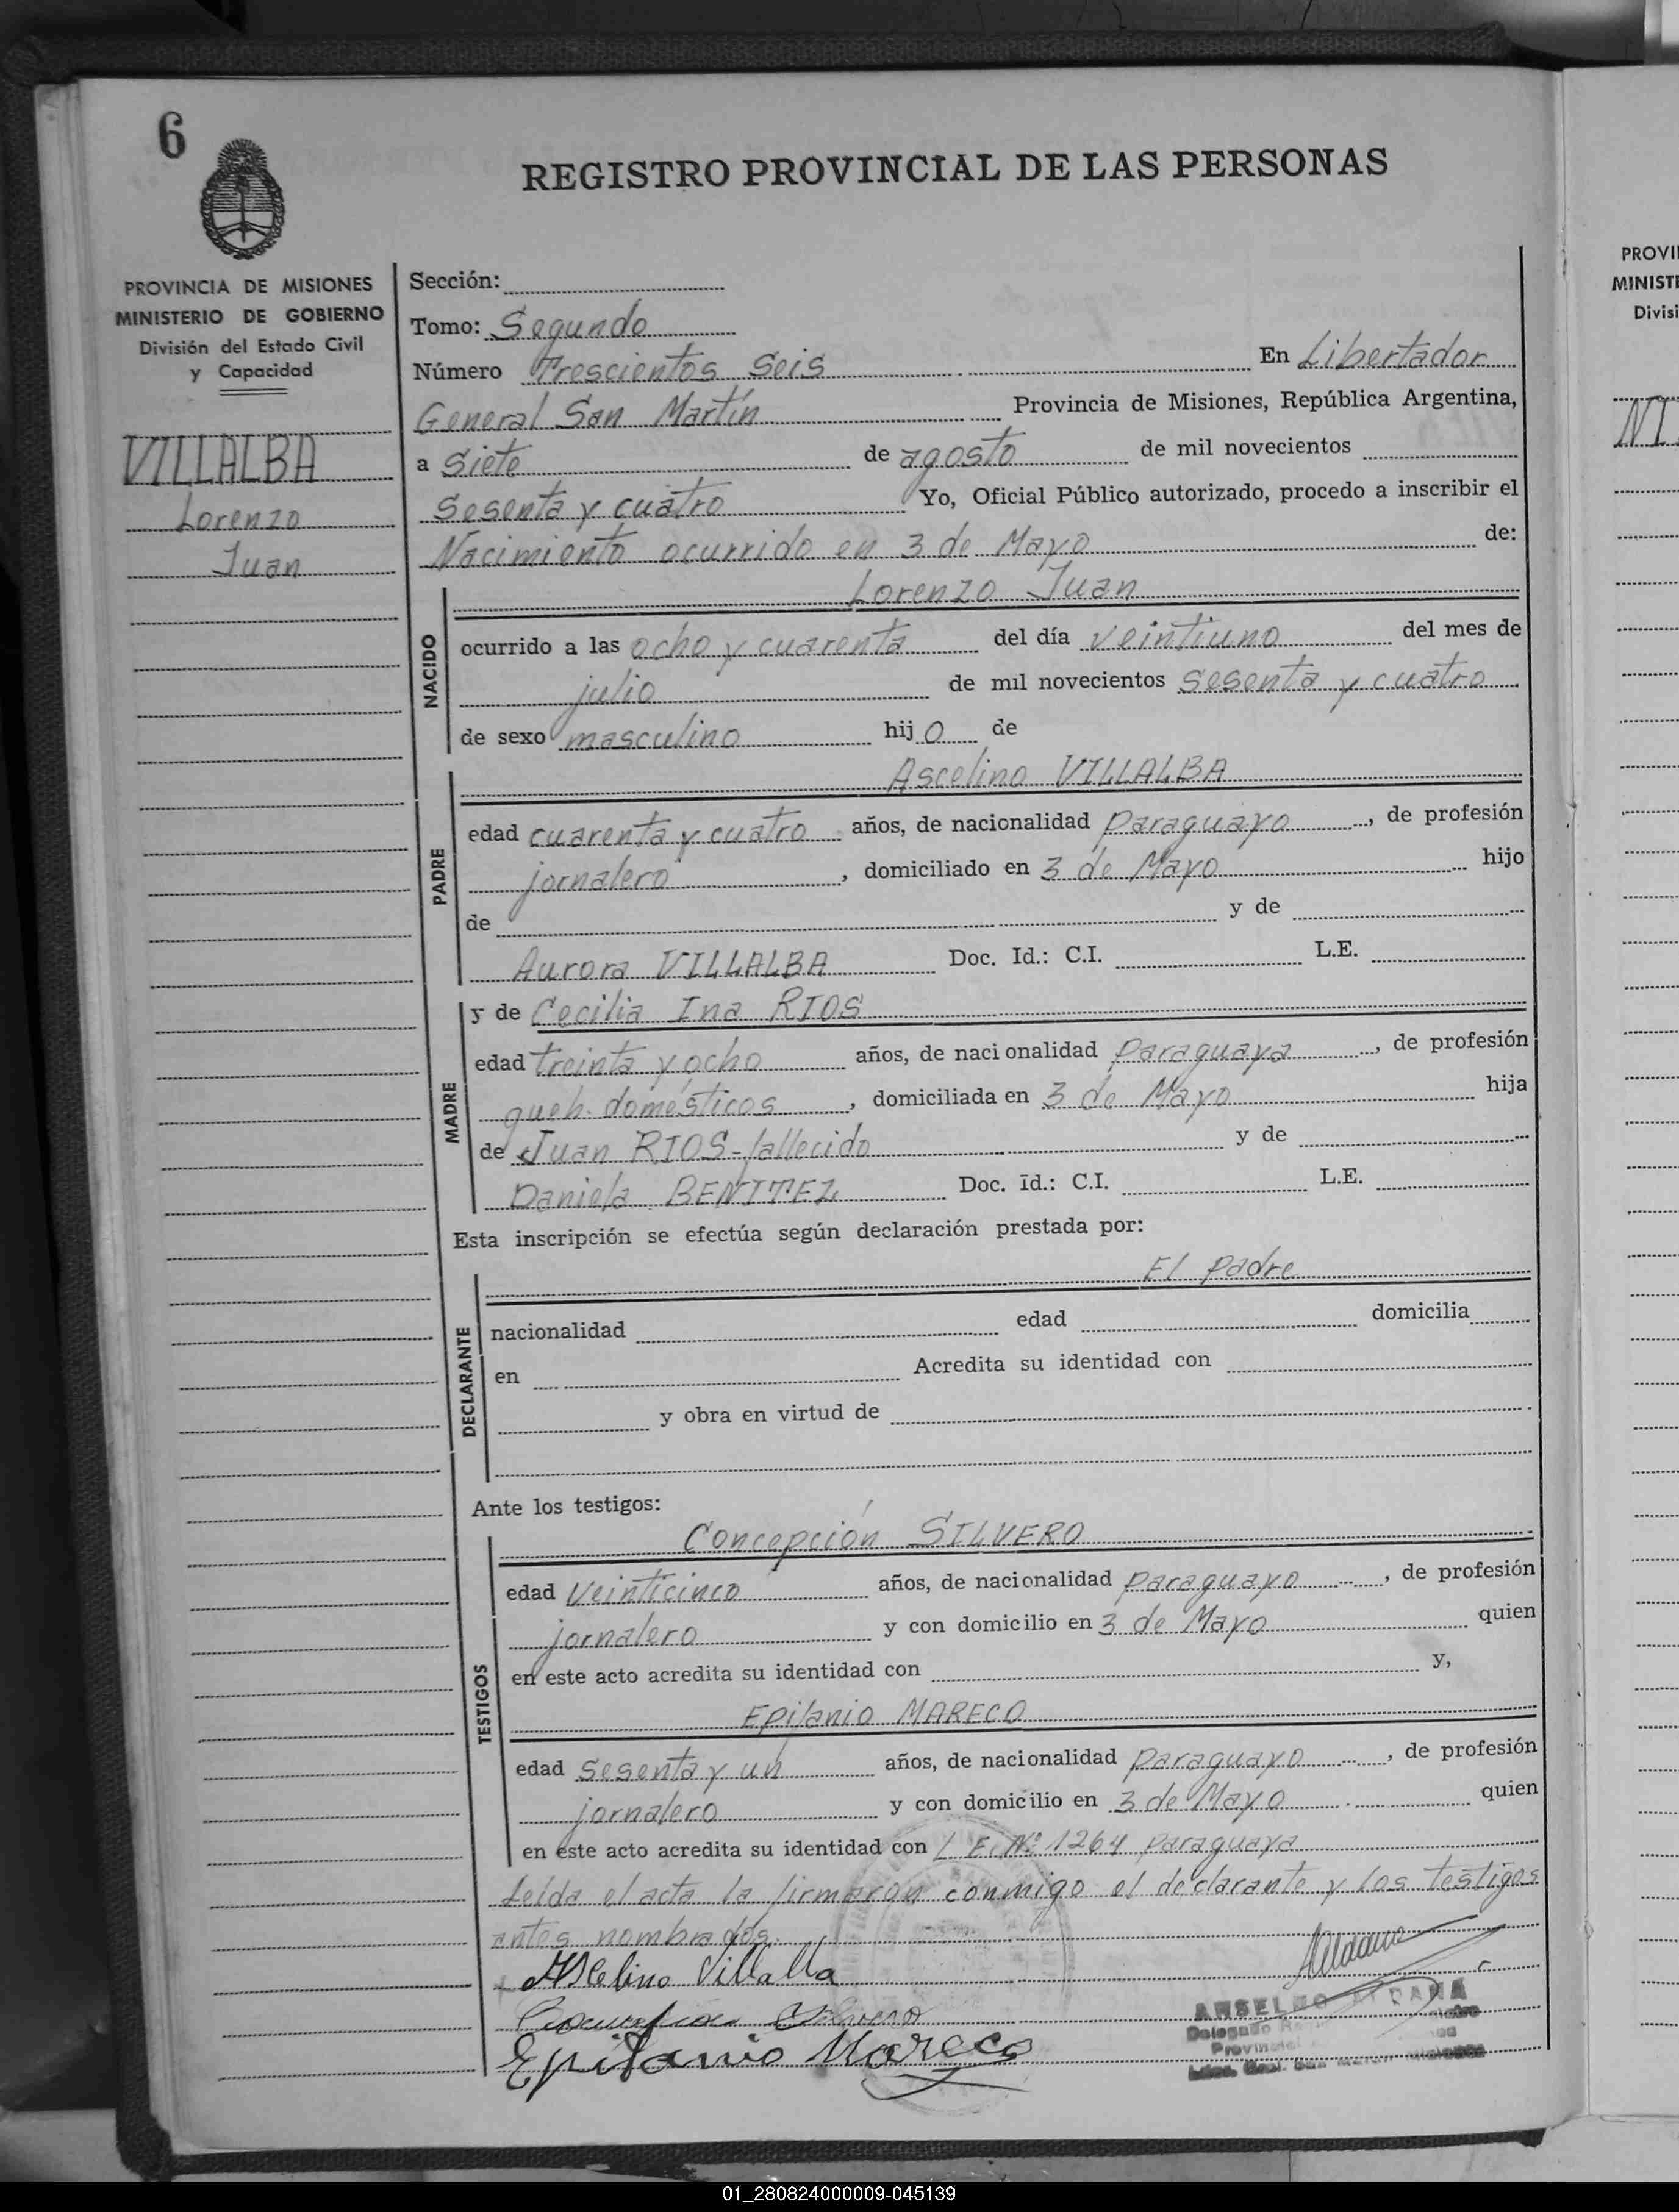 6
REGISTRO PROVINCIAL DE LAS PERSONAS
PROVINCIA DE MISIONES
MINISTERIO DE GOBIERNO
División del Estado Civil
y Capacidad
VILLALBA
Lorenzo
Juan
Sección:
Tomo: Segundo
Número Trescientos Seis En Libertador
General San Martín Provincia de Misiones, República Argentina,
a Siete de agosto de mil novecientos
Sesenta y cuatro Yo, Oficial Público autorizado, procedo a inscribir el
Nacimiento ocurrido en 3 de Mayo de:
NACIDO
Lorenzo Juan
ocurrido a las ocho y cuarenta del día veintiuno del mes de
julio de mil novecientos Sesenta y cuatro
de sexo masculino hijo de
PADRE
Ascelino VILLALBA
edad cuarenta y cuatro años, de nacionalidad Paraguayo, de profesión
jornalero, domiciliado en 3 de Mayo hijo
de y de
Aurora VILLALBA Doc. Id.: C.I. L.E.
MADRE
y de Cecilia Ina RIOS
edad treinta y ocho años, de nacionalidad Paraguaya, de profesión
queh. domésticos, domiciliada en 3 de Mayo hija
de Juan RIOS-fallecido y de
Daniela BENITEZ Doc. Id.: C.I. L.E.
Esta inscripción se efectúa según declaración prestada por:
DECLARANTE
El Padre
nacionalidad edad domicilia
en Acredita su identidad con
y obra en virtud de
Ante los testigos:
TESTIGOS
Concepción SILVERO
edad Veinticinco años, de nacionalidad Paraguayo, de profesión
jornalero y con domicilio en 3 de Mayo quien
en este acto acredita su identidad con y,
Epifanio MARECO
edad Sesenta y un años, de nacionalidad Paraguayo, de profesión
jornalero y con domicilio en 3 de Mayo quien
en este acto acredita su identidad con L E. Nº 1264 Paraguaya
Leída el acta la firmaron conmigo el declarante y los testigos
antes nombrados.
Ascelino Villalba
Epifanio Mareco
Aldana
ANSELMO ALDANA
Delegado
Provincial
PROVI
MINISTE
Divisi
01_280824000009-045139